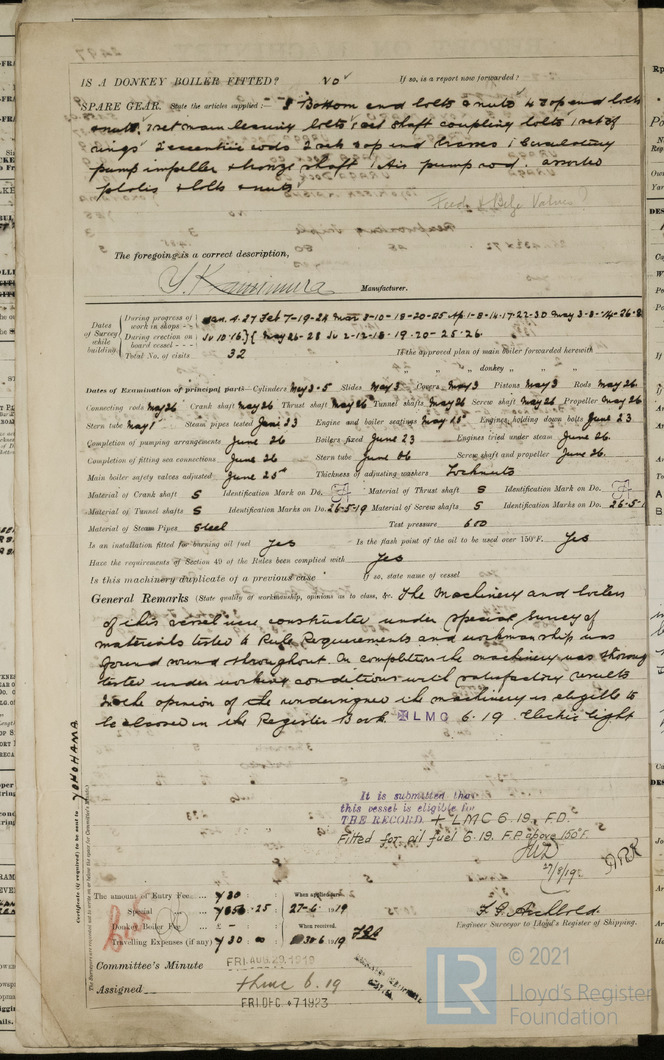 IS A DONKEY BOILER FITTED? No If so, is a report now forwarded?
SPARE GEAR. State the articles supplied:— 8 Bottom end bolts & nuts 4 top end bolts
& nuts, 1 set main bearing bolts 1 set shaft coupling bolts 1 set of
rings 2 eccentric rods 2 sets top end brasses 1 Circulating
pump impeller & bronze shaft 1 Air pump rod. assorted
& bolts & nuts
Feed & Bilge Valves?
The foregoing is a correct description,
Manufacturer.
Dates of Survey while building
During progress of work in shops - - Jan. 4. 27 Feb 7-19-24 Mar 3-10-18-20-25 Ap. 1-8-14-17-22-30 May 3-8-14-26-28
During erection on board vessel - - - May 26-28 Ju 2-12-18-19-20-25-26
Total No. of visits 32 Is the approved plan of main boiler forwarded herewith
" " " donkey " " "
Dates of Examination of principal parts—Cylinders May 3-5 Slides May 3 Covers May 3 Pistons May 3 Rods May 26
Connecting rods May 26 Crank shaft May 26 Thrust shaft May 26 Tunnel shafts May 26 Screw shaft May 26 Propeller May 26
Stern tube May 1 Steam pipes tested June 23 Engine and boiler seatings May 15 Engines holding down bolts June 23
Completion of pumping arrangements June 26 Boilers fixed June 23 Engines tried under steam June 26
Completion of fitting sea connections June 26 Stern tube June 26 Screw shaft and propeller June 26
Main boiler safety valves adjusted June 25 Thickness of adjusting washers Locknuts
Material of Crank shaft S Identification Mark on Do. Material of Thrust shaft S Identification Mark on Do.
Material of Tunnel shafts S Identification Marks on Do. 26-5-19 Material of Screw shafts S Identification Marks on Do. 26-5-1
Material of Steam Pipes Steel Test pressure 600
Is an installation fitted for burning oil fuel Yes Is the flash point of the oil to be used over 150°F. Yes
Have the requirements of Section 49 of the Rules been complied with Yes
Is this machinery duplicate of a previous case If so, state name of vessel
General Remarks (State quality of workmanship, opinions as to class, &c. The Machinery and boilers
of this vessel were constructed under special survey of
materials tested to Rule Requirements and workmanship was
found sound throughout. On completion the machinery was thoroug
tested under working conditions with satisfactory results
In the opinion of the undersigned the machinery is eligible to
be classed in the Register Book. ✠ LMC 6.19. Electric light
It is submitted that
this vessel is eligible for
THE RECORD. + LMC 6.19. F.D.
Fitted for oil fuel 6.19. F.P. above 150°F.
Certificate (if required) to be sent to YOKOHAMA
The amount of Entry Fee .. ¥ 30 : When applied for,
Special ¥ 656.25 : 27-6-1919
Donkey Boiler Fee £ - : When received,
Travelling Expenses (if any) ¥ 30 : 00 30.6.1919
Engineer Surveyor to Lloyd's Register of Shipping.
Committee's Minute FRI. AUG. 29. 1919
Assigned + LMC 6.19
FRI. DEC. 7 1923
LR
© 2021
Lloyd's Register
Foundation